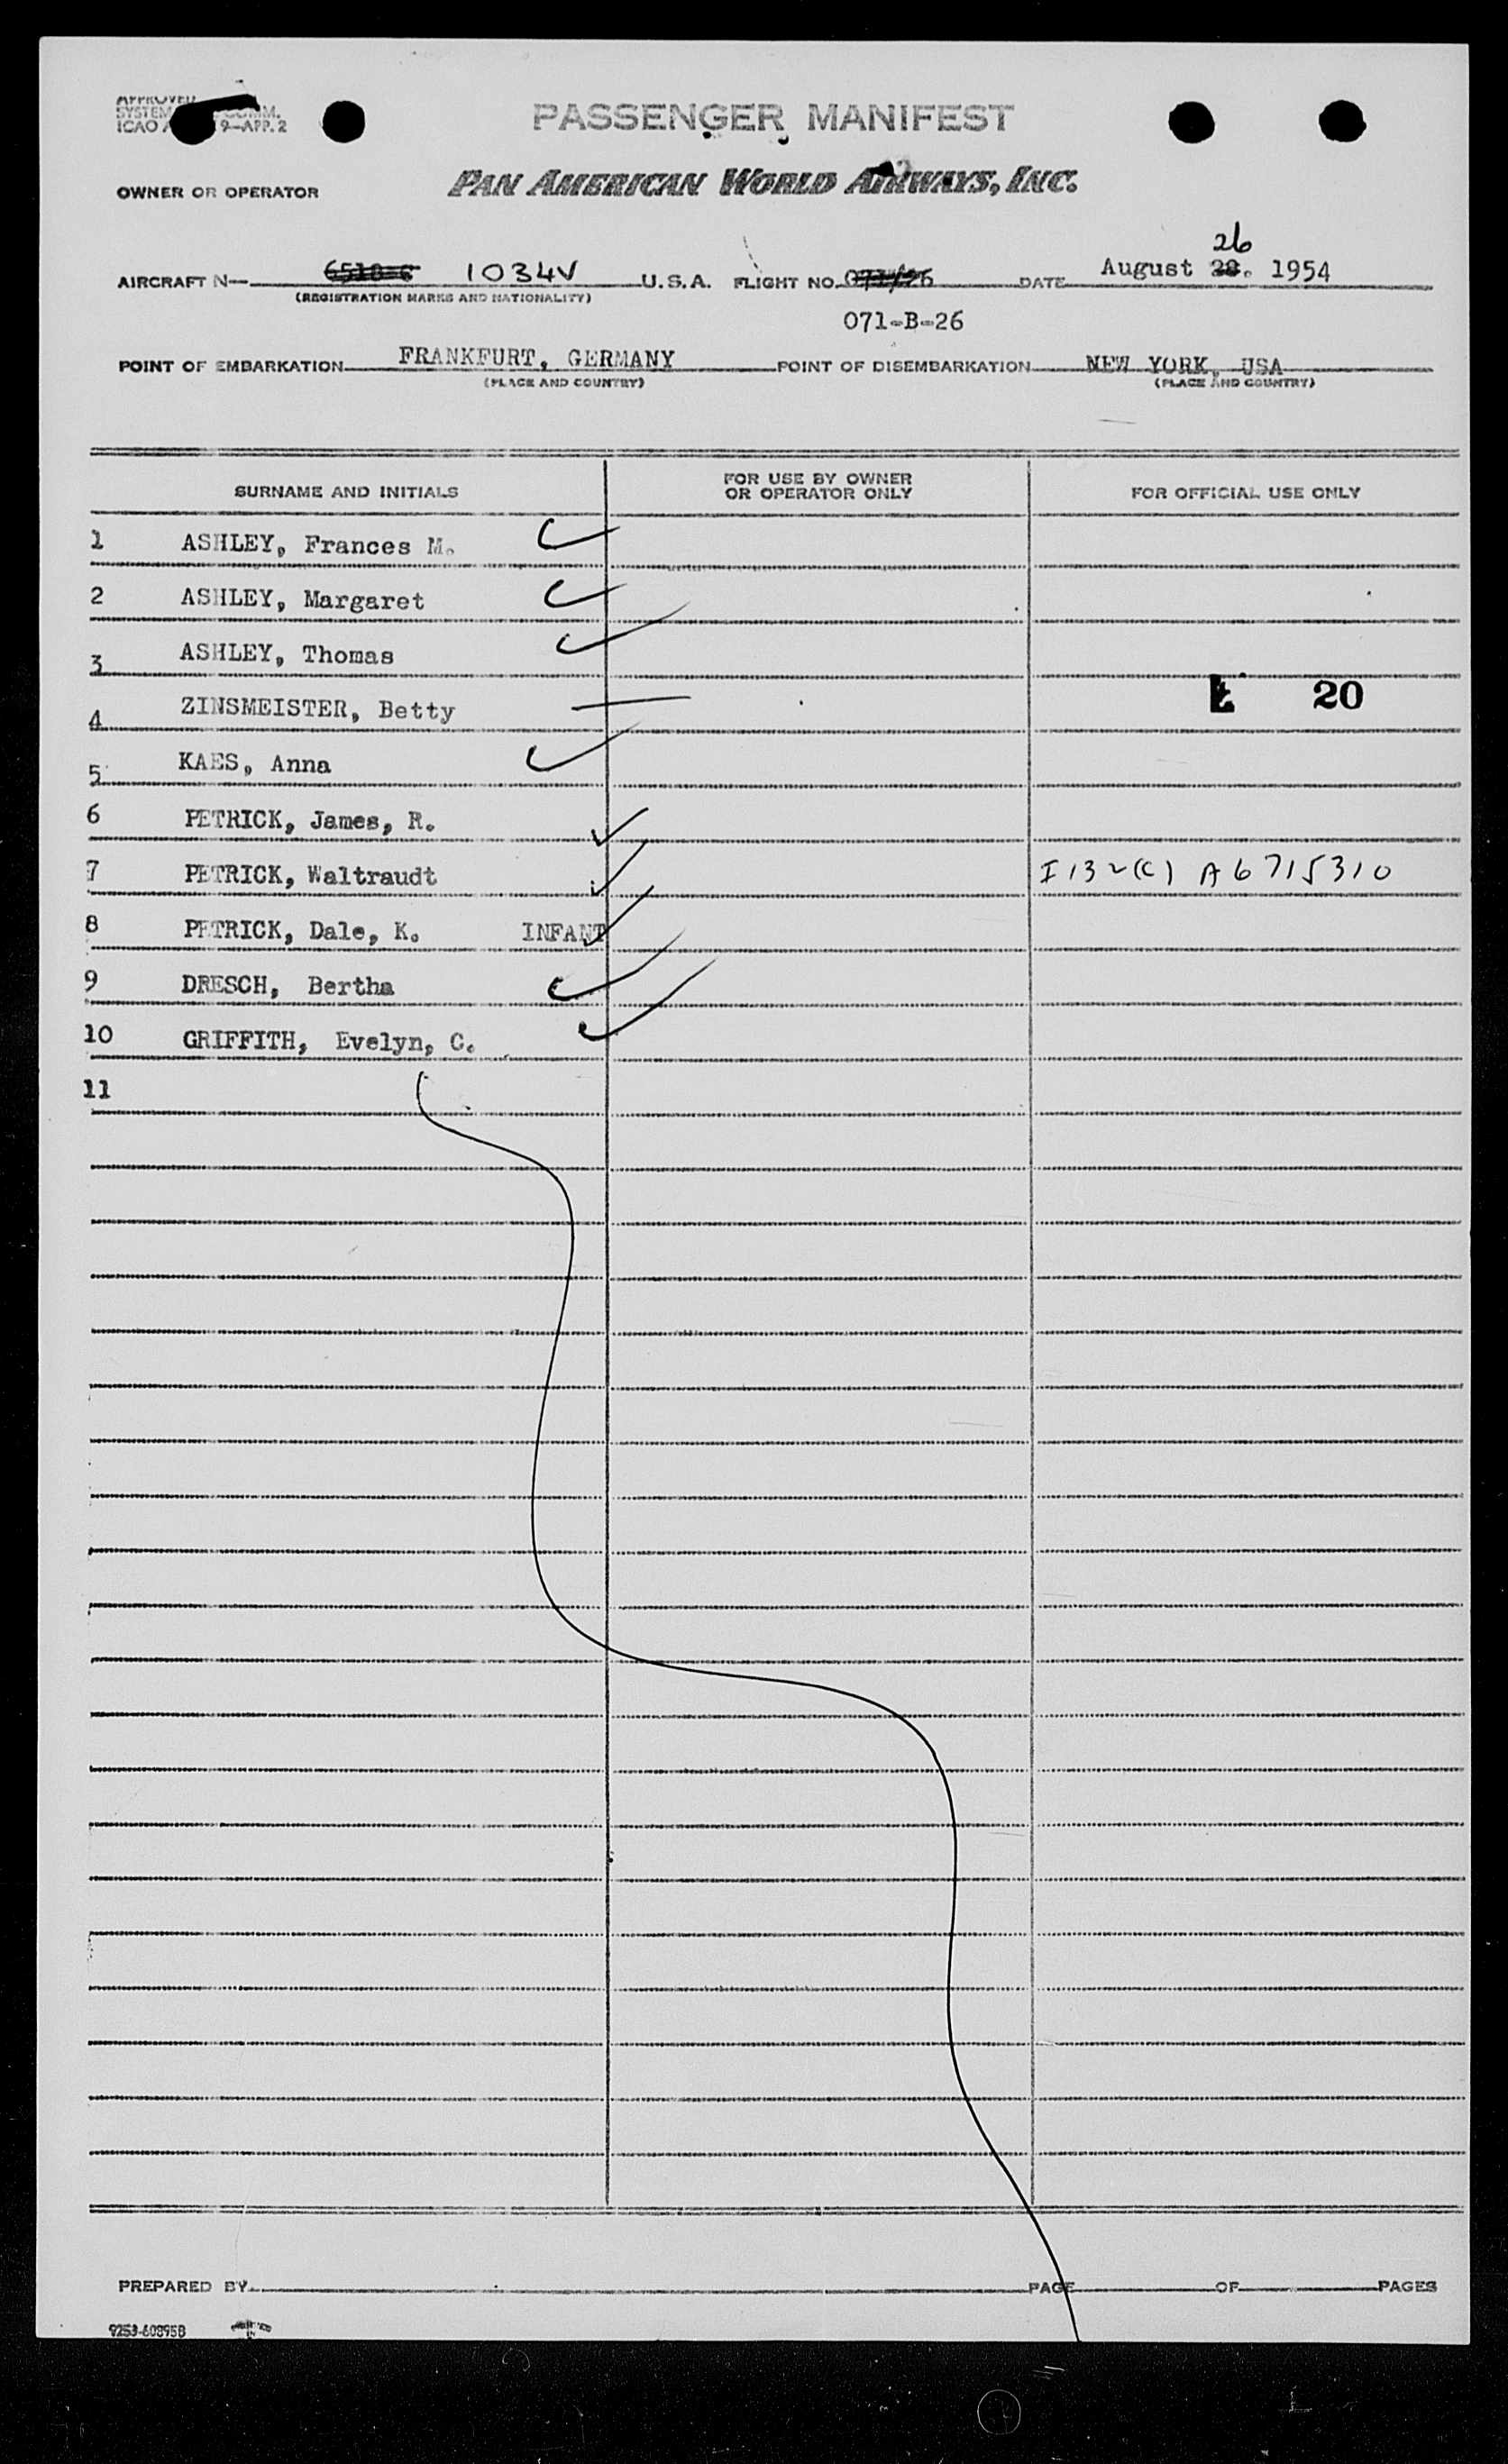 APPROVED
SYSTEM COMM.
ICAO A 9-APP. 2
PASSENGER MANIFEST
OWNER OR OPERATOR PAN AMERICAN WORLD AIRWAYS, INC.
26
AIRCRAFT N- 6518-C 1034V U.S.A. FLIGHT NO. 071/26 DATE August 28. 1954
(REGISTRATION MARKS AND NATIONALITY)
071-B-26
POINT OF EMBARKATION FRANKFURT, GERMANY POINT OF DISEMBARKATION NEW YORK, USA
(PLACE AND COUNTRY) (PLACE AND COUNTRY)
SURNAME AND INITIALS FOR USE BY OWNER OR OPERATOR ONLY FOR OFFICIAL USE ONLY
1 ASHLEY, Frances M.
2 ASHLEY, Margaret
3 ASHLEY, Thomas
4 ZINSMEISTER, Betty 20
5 KAES, Anna
6 PETRICK, James, R.
7 PETRICK, Waltraudt I132(c) A6715310
8 PETRICK, Dale, K. INFANT
9 DRESCH, Bertha
10 GRIFFITH, Evelyn, C.
11
PREPARED BY PAGE OF PAGES
9253-60895B